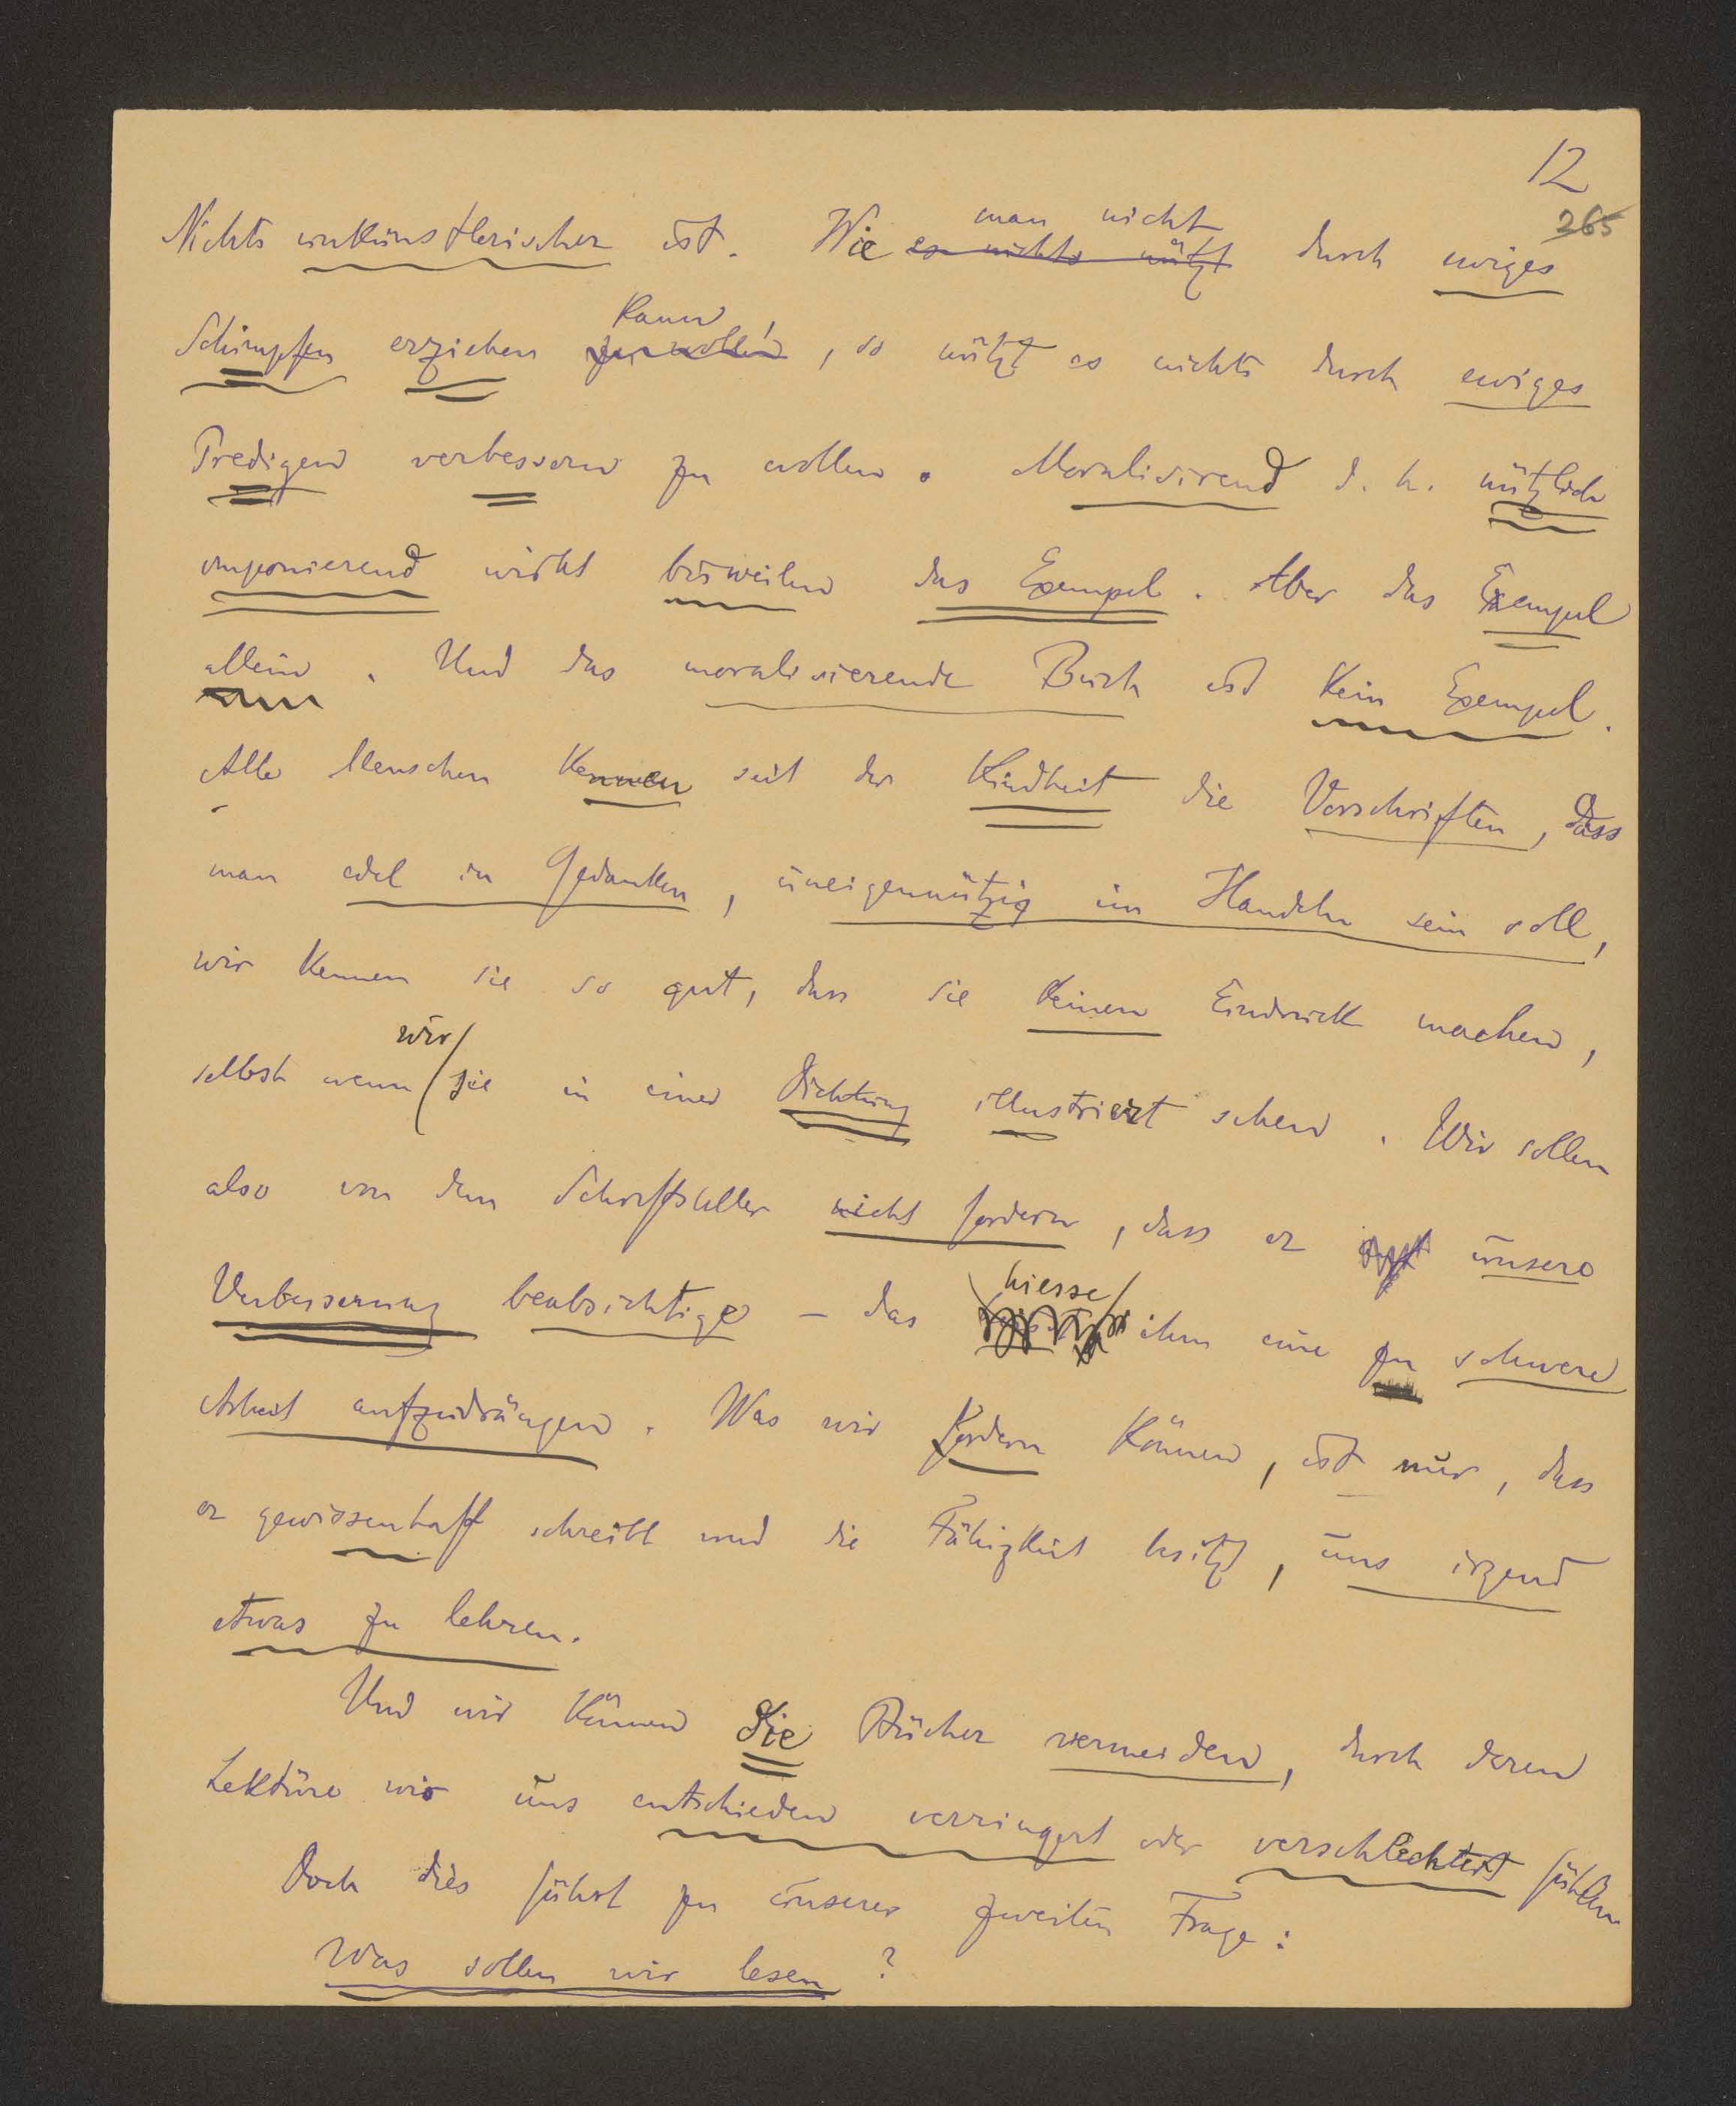 12
265
man nicht
Nichts unkünstlerischer ist. Wie es nichts nützt durch ewiges
kann
Schimpfen erziehen zu wollen, so nützt es nichts durch ewiges
Predigen verbessern zu wollen. Moralisirend d. h. nützlich
imponierend wirkt bisweilen das Exempel. Aber das Exempel
allein. Und das moralisierende Buch ist kein Exempel.
Alle Menschen kennen seit der Kindheit die Vorschriften, dass
man edel in Gedanken, uneigennützig im Handeln sein soll,
wir kennen sie so gut, dass sie keinen Eindruck machen,
wir
selbst wenn sie in einer Dichtung illustriert sehen. Wir sollen
also von dem Schriftsteller nicht fordern, dass er unsere
hiesse
Verbesserung beabsichtige – das ihm eine zu schwere
Arbeit aufzudrängen. Was wir fordern können, ist nur, dass
er gewissenhaft schreibt und die Fähigkeit besitzt, uns irgend
etwas zu lehren.
Und wir können die Bücher vermeiden, durch deren
Lektüre wir uns entschieden verringert oder verschlechtert fühlen
Doch dies führt zu unserer zweiten Frage:
Was sollen wir lesen?